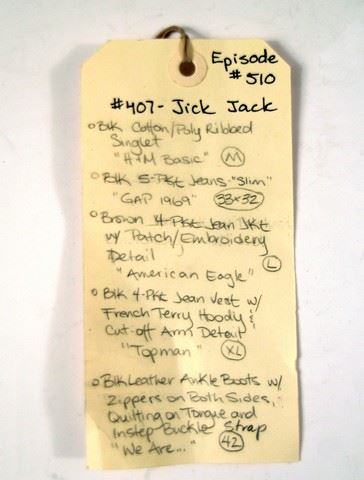 Episode
# 510
#407- Jick Jack
Blk Cotton/Poly Ribbed
Singlet
"H&M Basic" M
Blk 5-Pkt Jeans "Slim"
"GAP 1969" 33x32
Brown 4-Pkt Jean Jkt
w/ Patch/Embroidery
Detail L
"American Eagle"
Blk 4-Pkt Jean Vest w/
French Terry Hoody &
Cut-off Arm Detail
"Topman" XL
Blk Leather Ankle Boots w/
Zippers on Both Sides,
Quilting on Tongue and
Instep Buckle Strap
"We Are..." 42